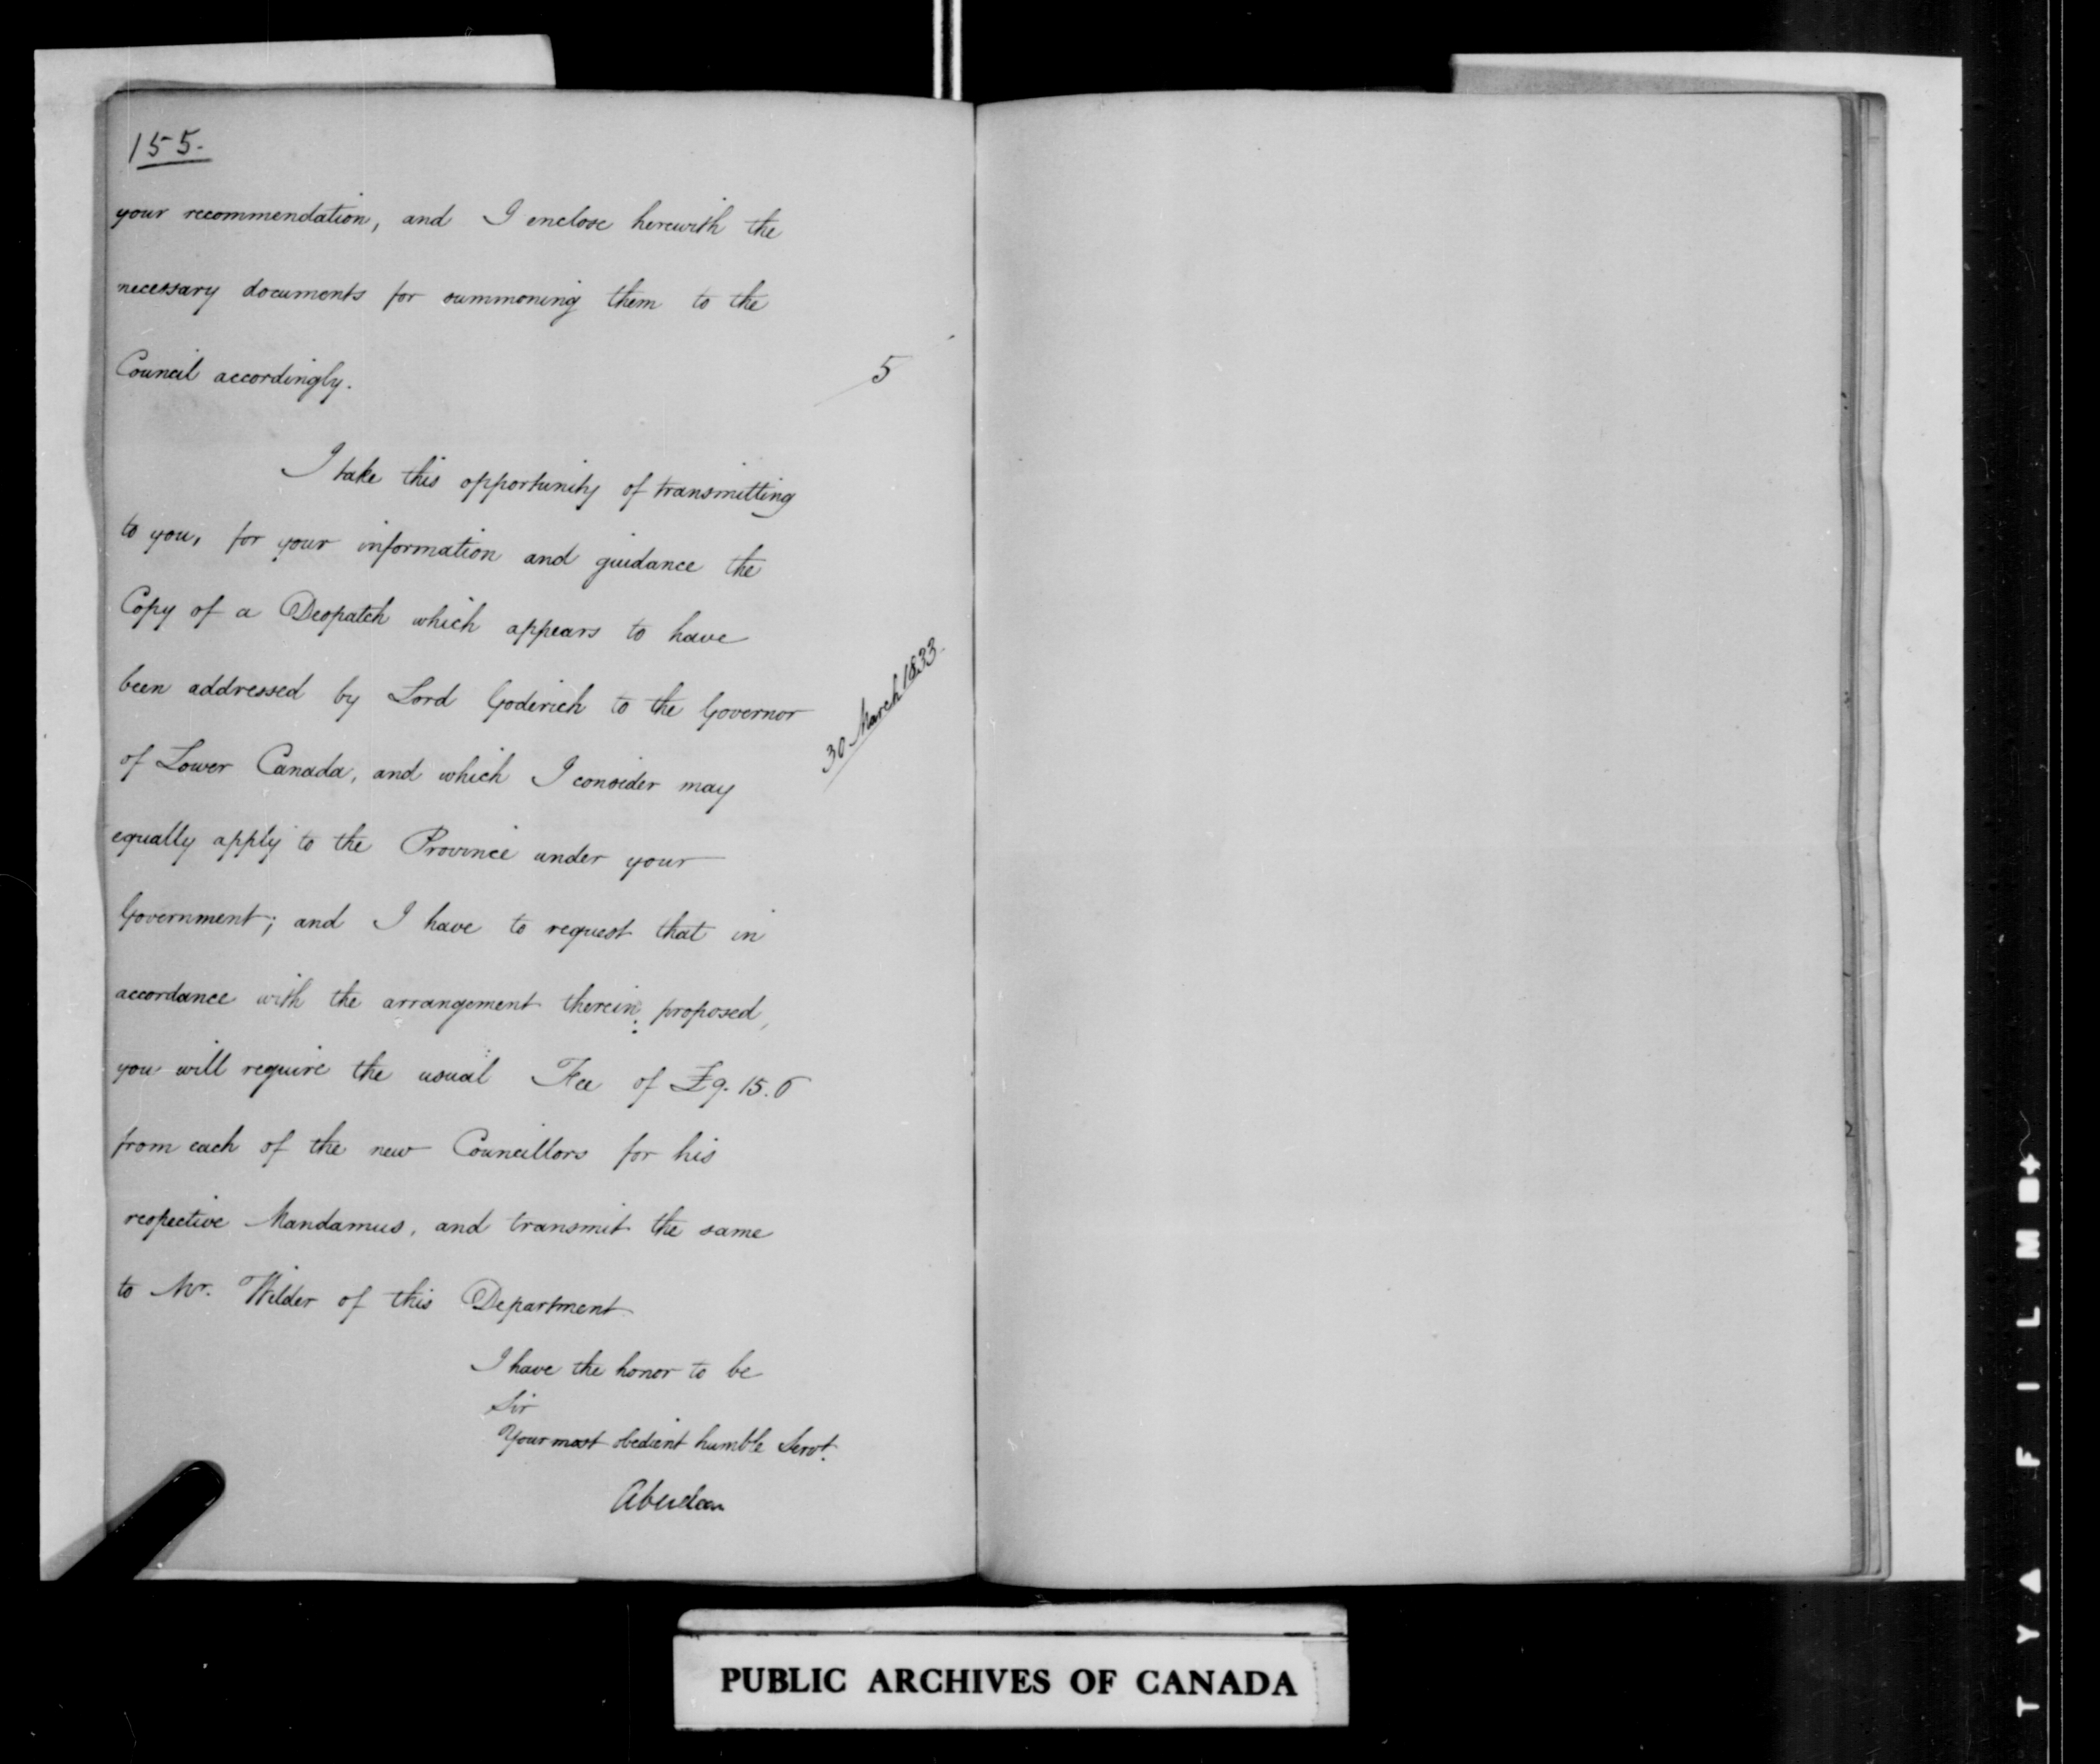 155.
your recommendation, and I enclose herewith the
necessary documents for summoning them to the
Council accordingly.
5
I take this opportunity of transmitting
to you, for your information and guidance the
Copy of a Despatch which appears to have
been addressed by Lord Goderich to the Governor
30 March 1833.
of Lower Canada, and which I consider may
equally apply to the Province under your
Government; and I have to request that in
accordance with the arrangement therein proposed,
you will require the usual Fee of £9.15.6
from each of the new Councillors for his
respective Mandamus, and transmit the same
to Mr. Wilder of this Department
I have the honor to be
Sir
Your most obedient humble Servt.
Aberdeen
PUBLIC ARCHIVES OF CANADA
TY▲ FILM